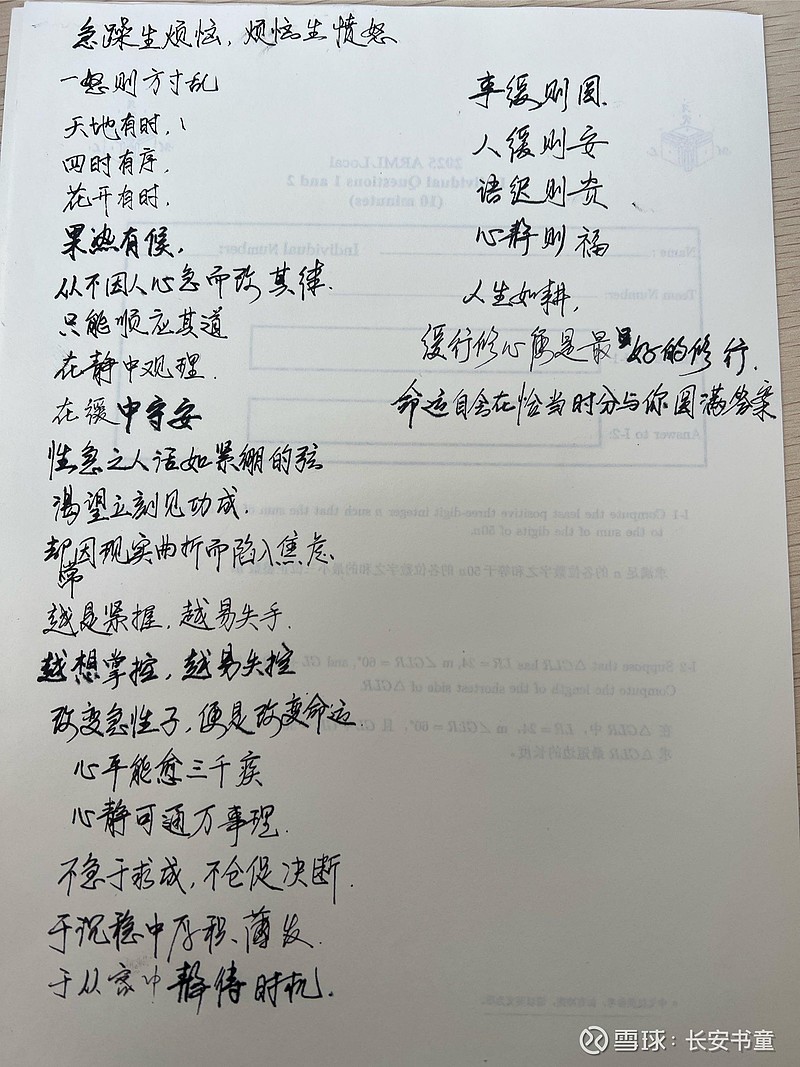 急躁生烦恼，烦恼生愤怒
一怒则方寸乱
天地有时，
四时有序，
花开有时，
果熟有候，
从不因人心急而改其律.
只能顺应其道
在静中观理.
在缓中守安
性急之人话如紧绷的弦
渴望立刻见功成.
却常因现实曲折而陷入焦虑.
越是紧握，越易失手.
越想掌控，越易失控
改变急性子，便是改变命运.
心平能愈三千疾
心静可通万事理.
不急于求成，不仓促决断.
于沉稳中厚积、薄发.
于从容中静待时机.
事缓则圆.
人缓则安
语迟则贵
心静则福
人生如耕，
缓行修心便是最好的修行.
命运自会在恰当时分与你圆满答案
2025 ARML Local
Individual Questions 1 and 2
(10 minutes)
Name:
Individual Number:
Team Number:
Answer to I-2:
I-1 Compute the least positive three-digit integer n such that the sum
to the sum of the digits of 50n.
I-2 Suppose that △GLR has LR = 24, m∠GLR = 60°, and GL
Compute the length of the shortest side of △GLR.
在 △GLR 中，LR = 24，m∠GLR = 60°，且
求 △GLR 最短边的长度。
雪球：长安书童